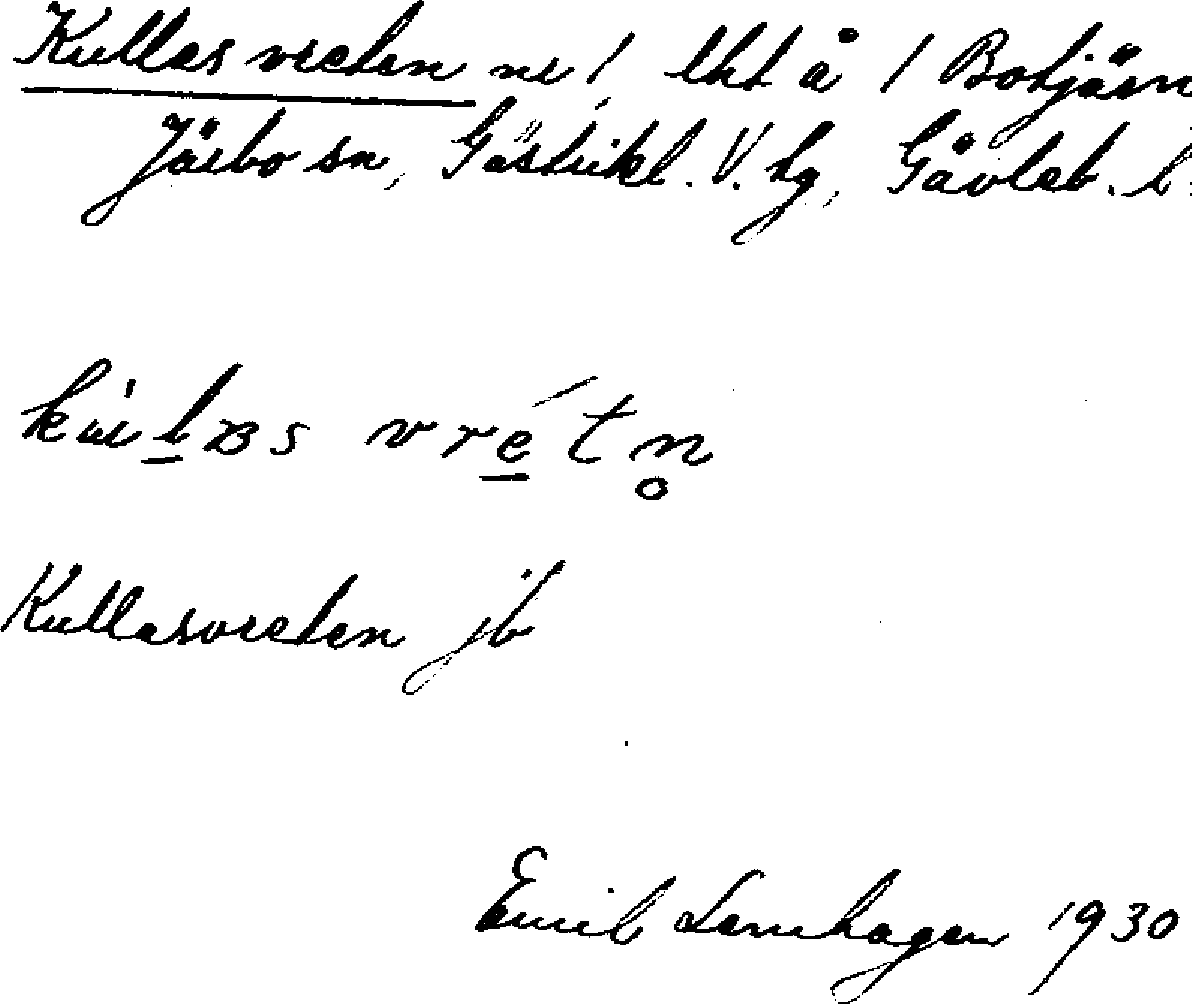 Kullas vreten nr 1, lht å 1 Botjärn
Järbo sn, Gästrikl. V. hg, Gävleb. l
vrét n
Kullasvreten jb
Emil Lennhagen 1930